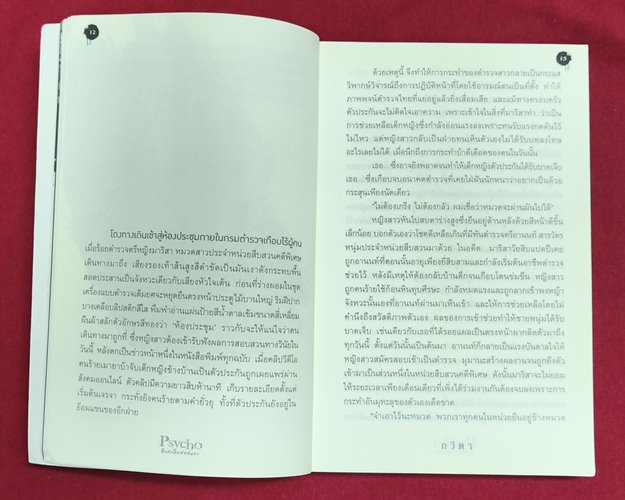 12
โถงทางเดินเข้าสู่ห้องประชุมภายในกรมตำรวจเกือบไร้ผู้คน
เมื่อร้อยตำรวจตรีหญิงมาริสา หมวดสาวประจำหน่วยสืบสวนคดีพิเศษ
เดินทางมาถึง เสียงรองเท้าส้นสูงสีดำขัดเป็นมันเงาดังกระทบพื้น
สอดประสานเป็นจังหวะเดียวกับเสียงหัวใจเต้น ก่อนที่ร่างผอมในชุด
เครื่องแบบตำรวจเต็มยศจะหยุดยืนตรงหน้าประตูไม้บานใหญ่ ริมฝีปาก
บางเคลือบลิปสติกสีใส พึมพำอ่านแผ่นป้ายสีน้ำตาลเข้มขนาดสี่เหลี่ยม
ผืนผ้าสลักตัวอักษรสีทองว่า 'ห้องประชุม' ราวกับจะให้แน่ใจว่าตน
เดินทางมาถูกที่ ซึ่งหญิงสาวต้องเข้ารับฟังผลการสอบสวนทางวินัยใน
วันนี้ หลังตกเป็นข่าวหน้าหนึ่งในหนังสือพิมพ์ทุกฉบับ เมื่อคลิปวีดีโอ
คนร้ายเมายาบ้าจับเด็กหญิงข้างบ้านเป็นตัวประกันถูกเผยแพร่ผ่าน
สังคมออนไลน์ ตัวคลิปมีความยาวสิบห้านาที เก็บรายละเอียดตั้งแต่
เริ่มต้นเจรจา กระทั่งยิงคนร้ายตามคำยั่วยุ ทั้งที่ตัวประกันยังอยู่ใน
อ้อมแขนของอีกฝ่าย
Psycho
13
ด้วยเหตุนี้ จึงทำให้การกระทำของตำรวจสาวกลายเป็นกระแส
วิพากษ์วิจารณ์ถึงการปฏิบัติหน้าที่โดยใช้อารมณ์ตนเป็นที่ตั้ง ทำให้
ภาพพจน์ตำรวจไทยที่แย่อยู่แล้วยิ่งเสื่อมเสีย และแม้ทางครอบครัว
ตัวประกันจะไม่ติดใจเอาความ เพราะเข้าใจในสิ่งที่มาริสาทำ ว่าเป็น
การช่วยเหลือเด็กหญิงซึ่งกำลังอ่อนแรงลงเพราะทนรับแรงกดดันไว้
ไม่ไหว แต่หญิงสาวกลับเป็นฝ่ายทนเห็นตัวเองไม่ได้รับบทลงโทษ
อะไรเลยไม่ได้ เมื่อนึกถึงการกระทำบ้าดีเดือดของตนในวันนั้น
เธอ...ซึ่งอาจยิงพลาดจนทำให้เด็กหญิงตัวประกันได้รับบาดเจ็บ
เธอ...ซึ่งเกือบจบอนาคตตำรวจที่เคยใฝ่ฝันนักหนาว่าอยากเป็นด้วย
กระสุนเพียงนัดเดียว
"ไม่ต้องเกร็ง ไม่ต้องกลัว ผมเชื่อว่าหมวดจะผ่านมันไปได้"
หญิงสาวหันไปสบตาร่างสูงซึ่งยืนอยู่ด้านหลังด้วยสีหน้าดีขึ้น
เล็กน้อย บอกตัวเองว่าโชคดีเหลือเกินที่มีพันตำรวจตรีอานนท์ สารวัตร
หนุ่มประจำหน่วยสืบสวนมาด้วย ในอดีต...มาริสาวัยสิบแปดปีเคย
ถูกอานนท์ที่ตอนนั้นอายุเพียงยี่สิบสามและกำลังเริ่มต้นอาชีพตำรวจ
ช่วยไว้ หลังมีเหตุให้ต้องกลับบ้านดึกจนเกือบโดนข่มขืน หญิงสาว
ถูกคนร้ายใช้ก้อนหินทุบศีรษะ กำลังหมดแรงและถูกลากเข้าพงหญ้า
จังหวะนั้นเองที่อานนท์ผ่านมาเห็นเข้า และให้การช่วยเหลือโดยไม่
คำนึงถึงสวัสดิภาพตัวเอง ผลของการเข้าช่วยทำให้ชายหนุ่มได้รับ
บาดเจ็บ เช่นเดียวกับเธอที่ได้รอยแผลเป็นตรงหน้าผากติดตัวมาถึง
ทุกวันนี้ ตั้งแต่วันนั้นเป็นต้นมา อานนท์ก็กลายเป็นแรงบันดาลใจให้
หญิงสาวสมัครสอบเข้าเป็นตำรวจ มุมานะสร้างผลงานจนถูกดึงตัว
เข้ามาเป็นส่วนหนึ่งในหน่วยสืบสวนคดีพิเศษ ดังนั้นมาริสาจะไม่ยอม
ให้ระยะเวลาเพียงเดือนเดียวที่เพิ่งได้ร่วมงานกันต้องจบลงเพราะการ
กระทำอันมุทะลุของตัวเองเด็ดขาด
"จำเอาไว้นะหมวด พวกเราทุกคนในหน่วยยืนอยู่ข้างหมวด
กวิตา